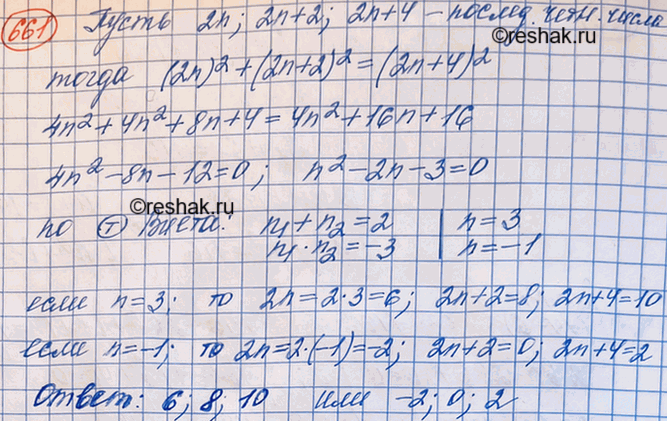 661 Пусть 2n; 2n+2; 2n+4 – послед. четн. числа
©reshak.ru
тогда (2n)² + (2n+2)² = (2n+4)²
4n² + 4n² + 8n + 4 = 4n² + 16n + 16
4n² – 8n – 12 = 0; n² – 2n – 3 = 0
©reshak.ru
по Ⓣ Виета: n₁ + n₂ = 2 | n = 3
n₁ · n₂ = –3 | n = –1
если n = 3; то 2n = 2·3 = 6; 2n+2 = 8; 2n+4 = 10
если n = –1; то 2n = 2·(–1) = –2; 2n+2 = 0; 2n+4 = 2
Ответ: 6; 8; 10 или –2; 0; 2